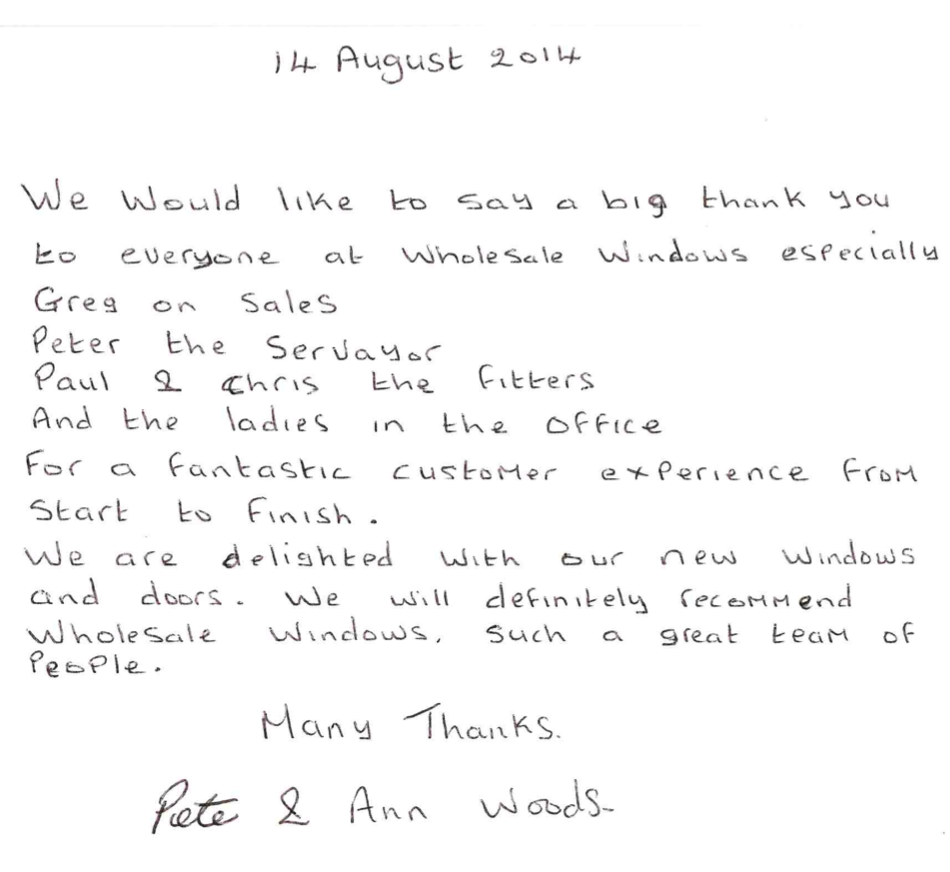 14 August 2014
We Would like to say a big thank you
to everyone at Wholesale Windows especially
Greg on Sales
Peter the Servayor
Paul & Chris the fitters
And the ladies in the office
For a fantastic customer experience from
Start to finish.
We are delighted with our new windows
and doors. We will definitely recommend
Wholesale Windows. Such a great team of
People.
Many Thanks.
Pete & Ann Woods.